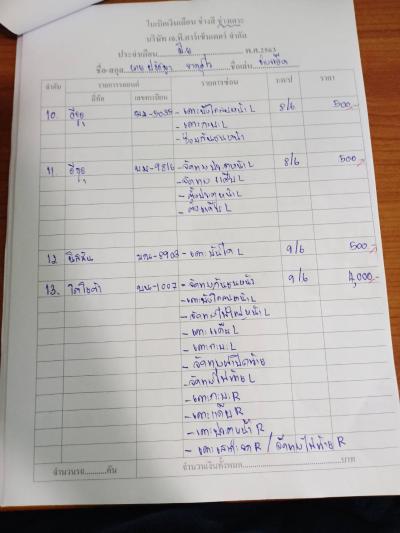 ใบเบิกเงินเดือน ช่างสี ช่างเคาะ
บริษัท เอ.ที.คาร์เซ็นเตอร์ จำกัด
ประจำเดือน พ.ศ.2563
ชื่อ-สกุล ชื่อเล่น
ลำดับ รายการรถยนต์ รายการซ่อม ว/ด/ป ราคา
ยี่ห้อ เลขทะเบียน
10. อีซูซุ 5035 - เคาะบังโคลนหน้า L 8/6 500.-
- เคาะกะบะ L
- ซ่อมกันชนหน้า
11. อีซูซุ บม-9816 - จัดทรงประตูหน้า L 8/6 500
- จัดทรงแค็บ L
- ตั้งประตูหน้า L
- ตั้งแค็บ L
12 นิสสัน - เคาะบันได L 9/6 500
13. โตโยต้า บน-1007 - จัดทรงกันชนหน้า 9/6 4,000.-
- เคาะบังโคลนหน้า L
- จัดทรงไฟใหญ่หน้า L
- เคาะแค็บ L
- เคาะกะบะ L
- จัดทรงฝาปิดท้าย
- จัดทรงไฟท้าย L
- เคาะกะบะ R
- เคาะแค็บ R
- เคาะประตูหน้า R
- R / จัดทรงไฟท้าย R
จำนวนรถ..........คัน จำนวนเงินทั้งหมด..........บาท